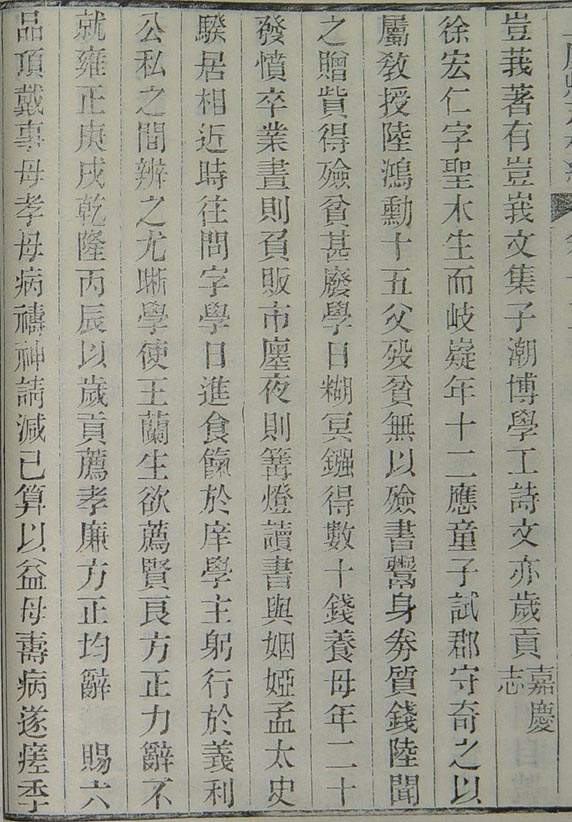 豈莪著有豈莪文集子潮博學工詩文亦歲貢嘉慶志
徐宏仁字聖木生而岐嶷年十二應童子試郡守奇之以
屬敎授陸鴻勳十五父歿貧無以殮書鬻身劵質錢陸聞
之贈貲得殮貧甚廢學日糊冥鏹得數十錢養母年二十
發憤卒業晝則負販市廛夜則篝燈讀書與姻婭孟太史
騤居相近時往問字學日進食餼於庠學主躬行於義利
公私之間辨之尤晰學使王蘭生欲薦賢良方正力辭不
就雍正庚戌乾隆丙辰以歲貢薦孝廉方正均辭 賜六
品頂戴事母孝母病禱神請減己算以益母壽病遂瘥季